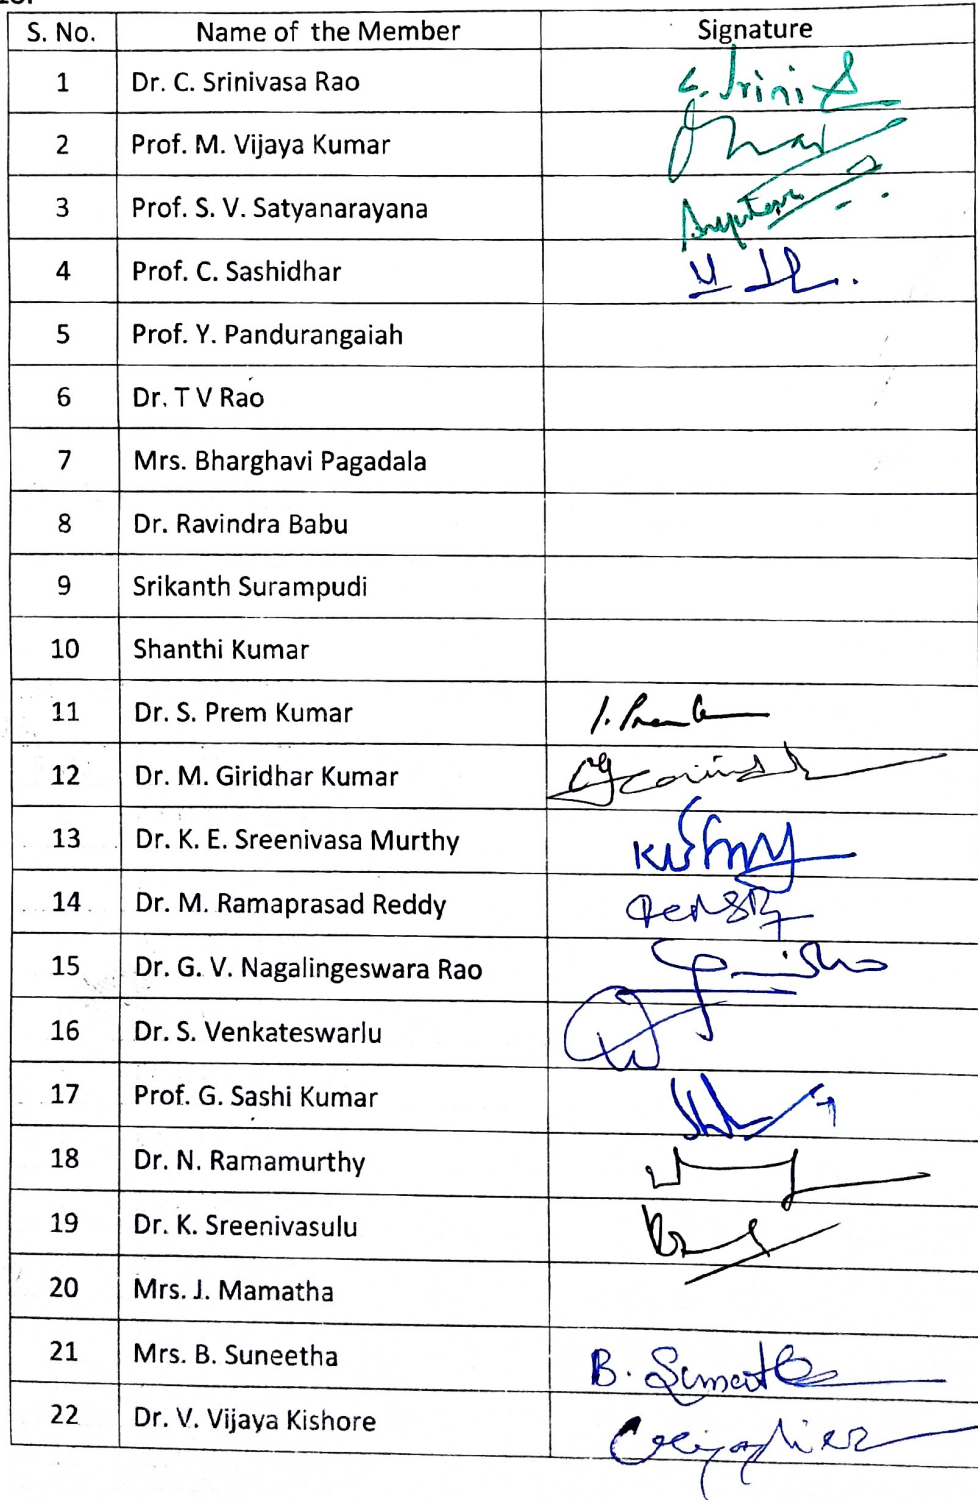 S. No. Name of the Member Signature
1 Dr. C. Srinivasa Rao
2 Prof. M. Vijaya Kumar
3 Prof. S. V. Satyanarayana
4 Prof. C. Sashidhar
5 Prof. Y. Pandurangaiah
6 Dr. T V Rao
7 Mrs. Bharghavi Pagadala
8 Dr. Ravindra Babu
9 Srikanth Surampudi
10 Shanthi Kumar
11 Dr. S. Prem Kumar
12 Dr. M. Giridhar Kumar
13 Dr. K. E. Sreenivasa Murthy
14 Dr. M. Ramaprasad Reddy
15 Dr. G. V. Nagalingeswara Rao
16 Dr. S. Venkateswarlu
17 Prof. G. Sashi Kumar
18 Dr. N. Ramamurthy
19 Dr. K. Sreenivasulu
20 Mrs. J. Mamatha
21 Mrs. B. Suneetha
22 Dr. V. Vijaya Kishore